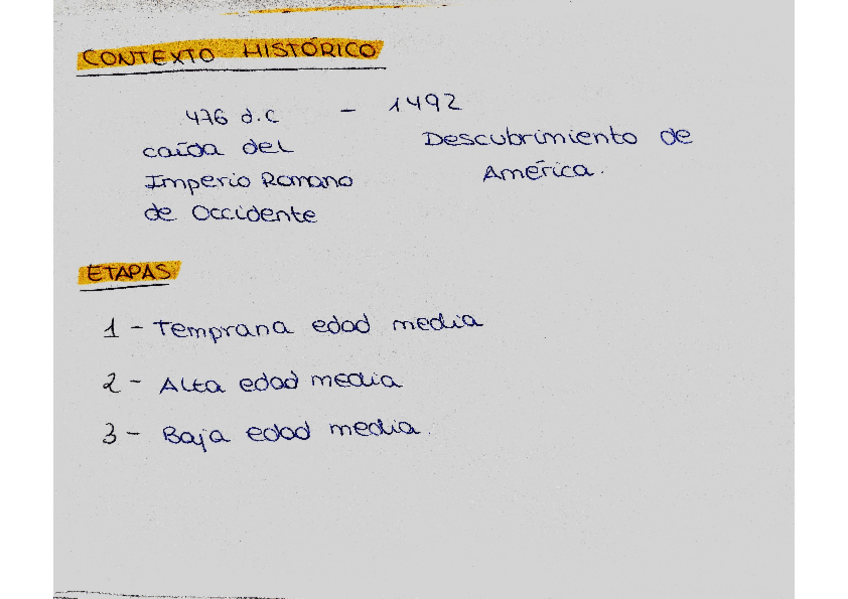 CONTEXTO HISTÓRICO
476 d.C - 1492
caída del Descubrimiento de
Imperio Romano América.
de Occidente
ETAPAS
1 - Temprana edad media
2 - Alta edad media
3 - Baja edad media.